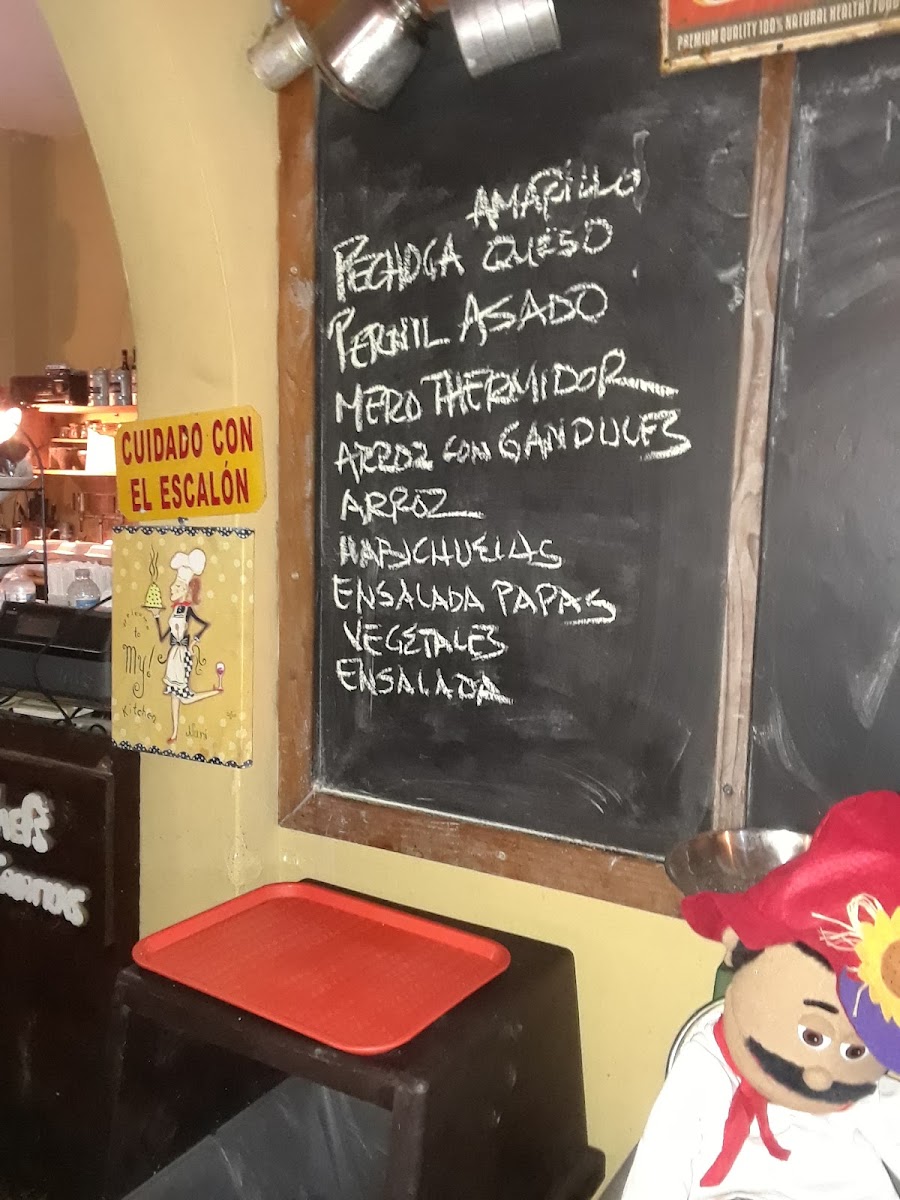 PREMIUM QUALITY 100% NATURAL HEALTHY FOOD
AMARILLO
PECHUGA QUESO
PERNIL ASADO
MERO THERMIDOR
ARROZ CON GANDULES
ARROZ
HABICHUELAS
ENSALADA PAPAS
VEGETALES
ENSALADA
CUIDADO CON
EL ESCALÓN
Welcome
to
My!
Kitchen